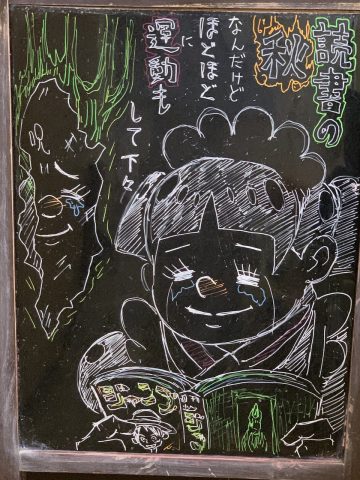 読書の
秋
なんだけど
ほどほどに
運動も
して下々
ジャンプ